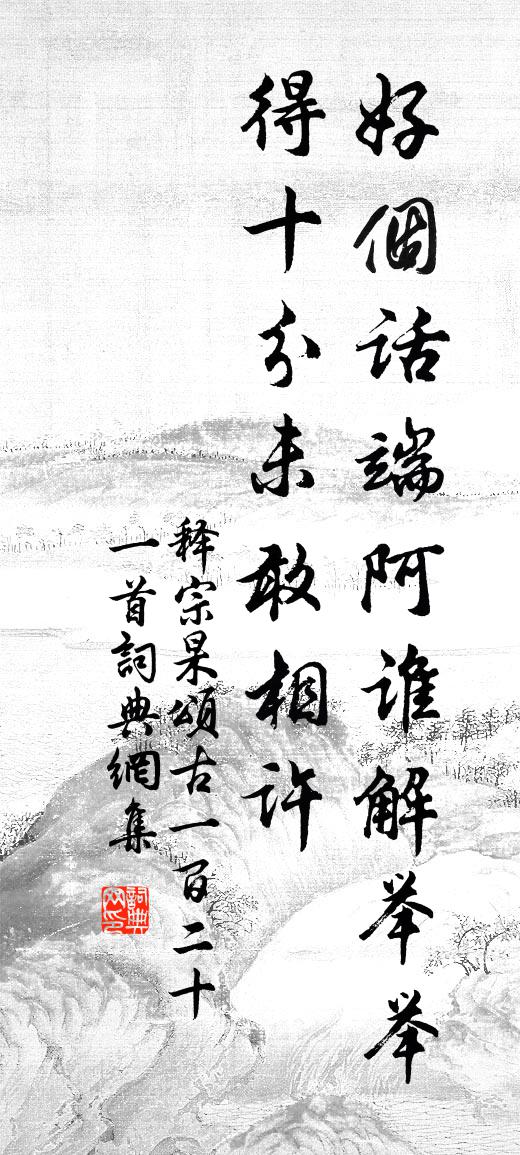 好個話端阿谁解举举
得十分未敢相许
释宗杲頌古一百二十
一首詞典網集
詞典
网印